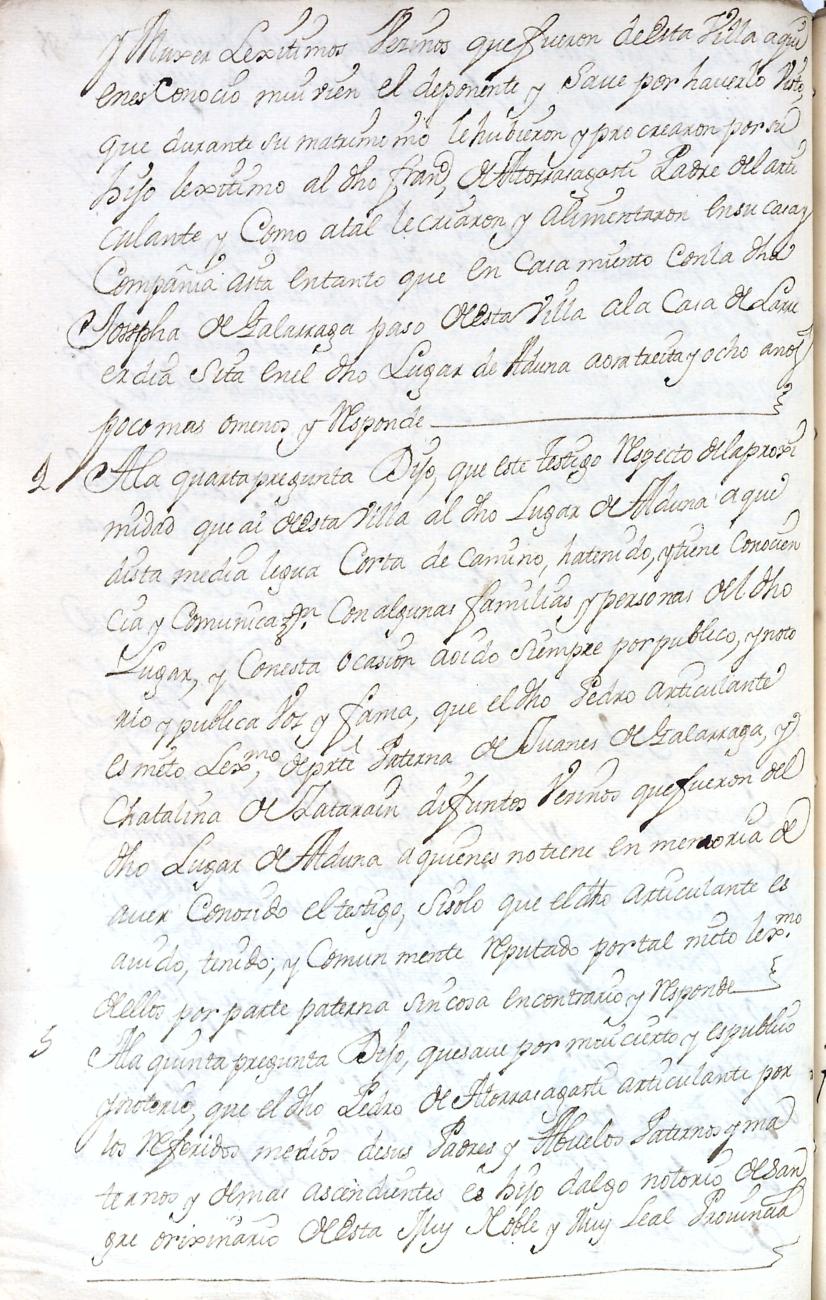 y Muxer Lexitimos Vezinos que fueron de esta Villa aqui
enes Conocio mui vien el deponente y Save por haverlo Visto,
que durante su matrimonio le hubieron y procrearon por su
hijo lexitimo al dho fran.co de Atorrasagasti Padre del arti
culante y Como atal le criaron y alimentaron en su casa y
Compañia asta entanto que en Casamiento con la dha
Josepha de Galarraga paso de esta Villa ala Casa de Larre
erdia Sita en el dho Lugar de Aduna aora treita y ocho anos
poco mas omenos y responde
4 Ala quarta pregunta Dijo, que este testigo respecto dela proxi
midad que ai de esta Villa al dho Lugar de Alduna aque
dista media legua Corta de camino, hatenido, y tiene Conocien
cia y Comunicaz.on Con algunas familias y personas del dho
Lugar, y Conesta ocasion aoido siempre por publico, y noto
rio y publica Voz y fama, que el dho Pedro articulante
es nieto Lex.mo, de prte Paterna de Juanes de Galarraga, y
Chatalina de Zatarain difuntos Vezinos que fueron del
dho Lugar de Alduna aquienes notiene en memoria de
aver Conozido el testigo, sisolo que el dho articulante es
auido, tenido, y Comun mente reputado portal nieto lex.mo
dellos por parte paterna sin cosa encontrario y responde
5 Ala quinta pregunta Dijo, quesave por mui cierto y es publico
y notorio, que el dho Pedro de Atorrasagasti articulante por
los referidos medios desus Padres y Abuelos Paternos y ma
ternos y demas ascendientes es hijo dalgo notorio de san
gre orixinario de esta Muy Noble y Muy Leal Provincia